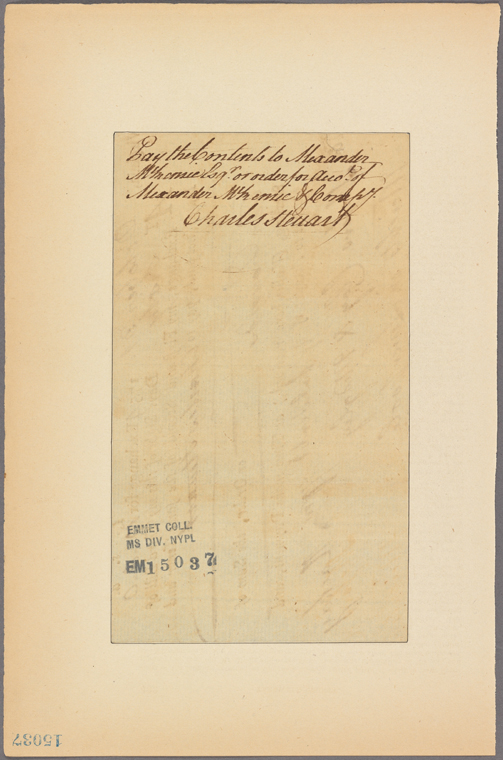 Pay the Contents to Alexander
McKenzie Esqr. or order for Acco.t of
Alexander McKenzie & Compy.
Charles Steuart
EMMET COLL.
MS DIV. NYPL
EM15037
15037